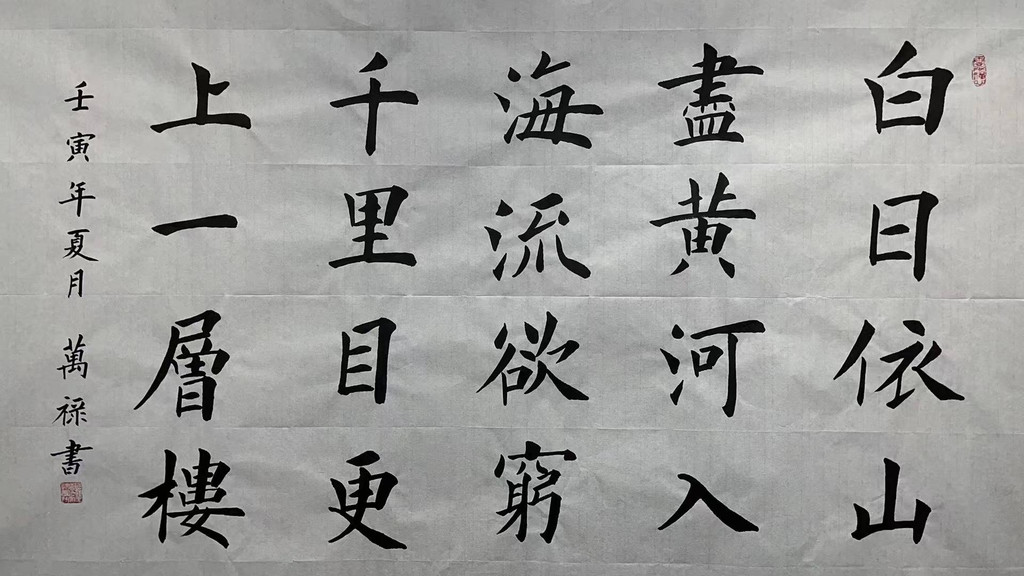 白日依山
盡黃河入
海流欲窮
千里目更
上一層樓
壬寅年夏月 萬祿書